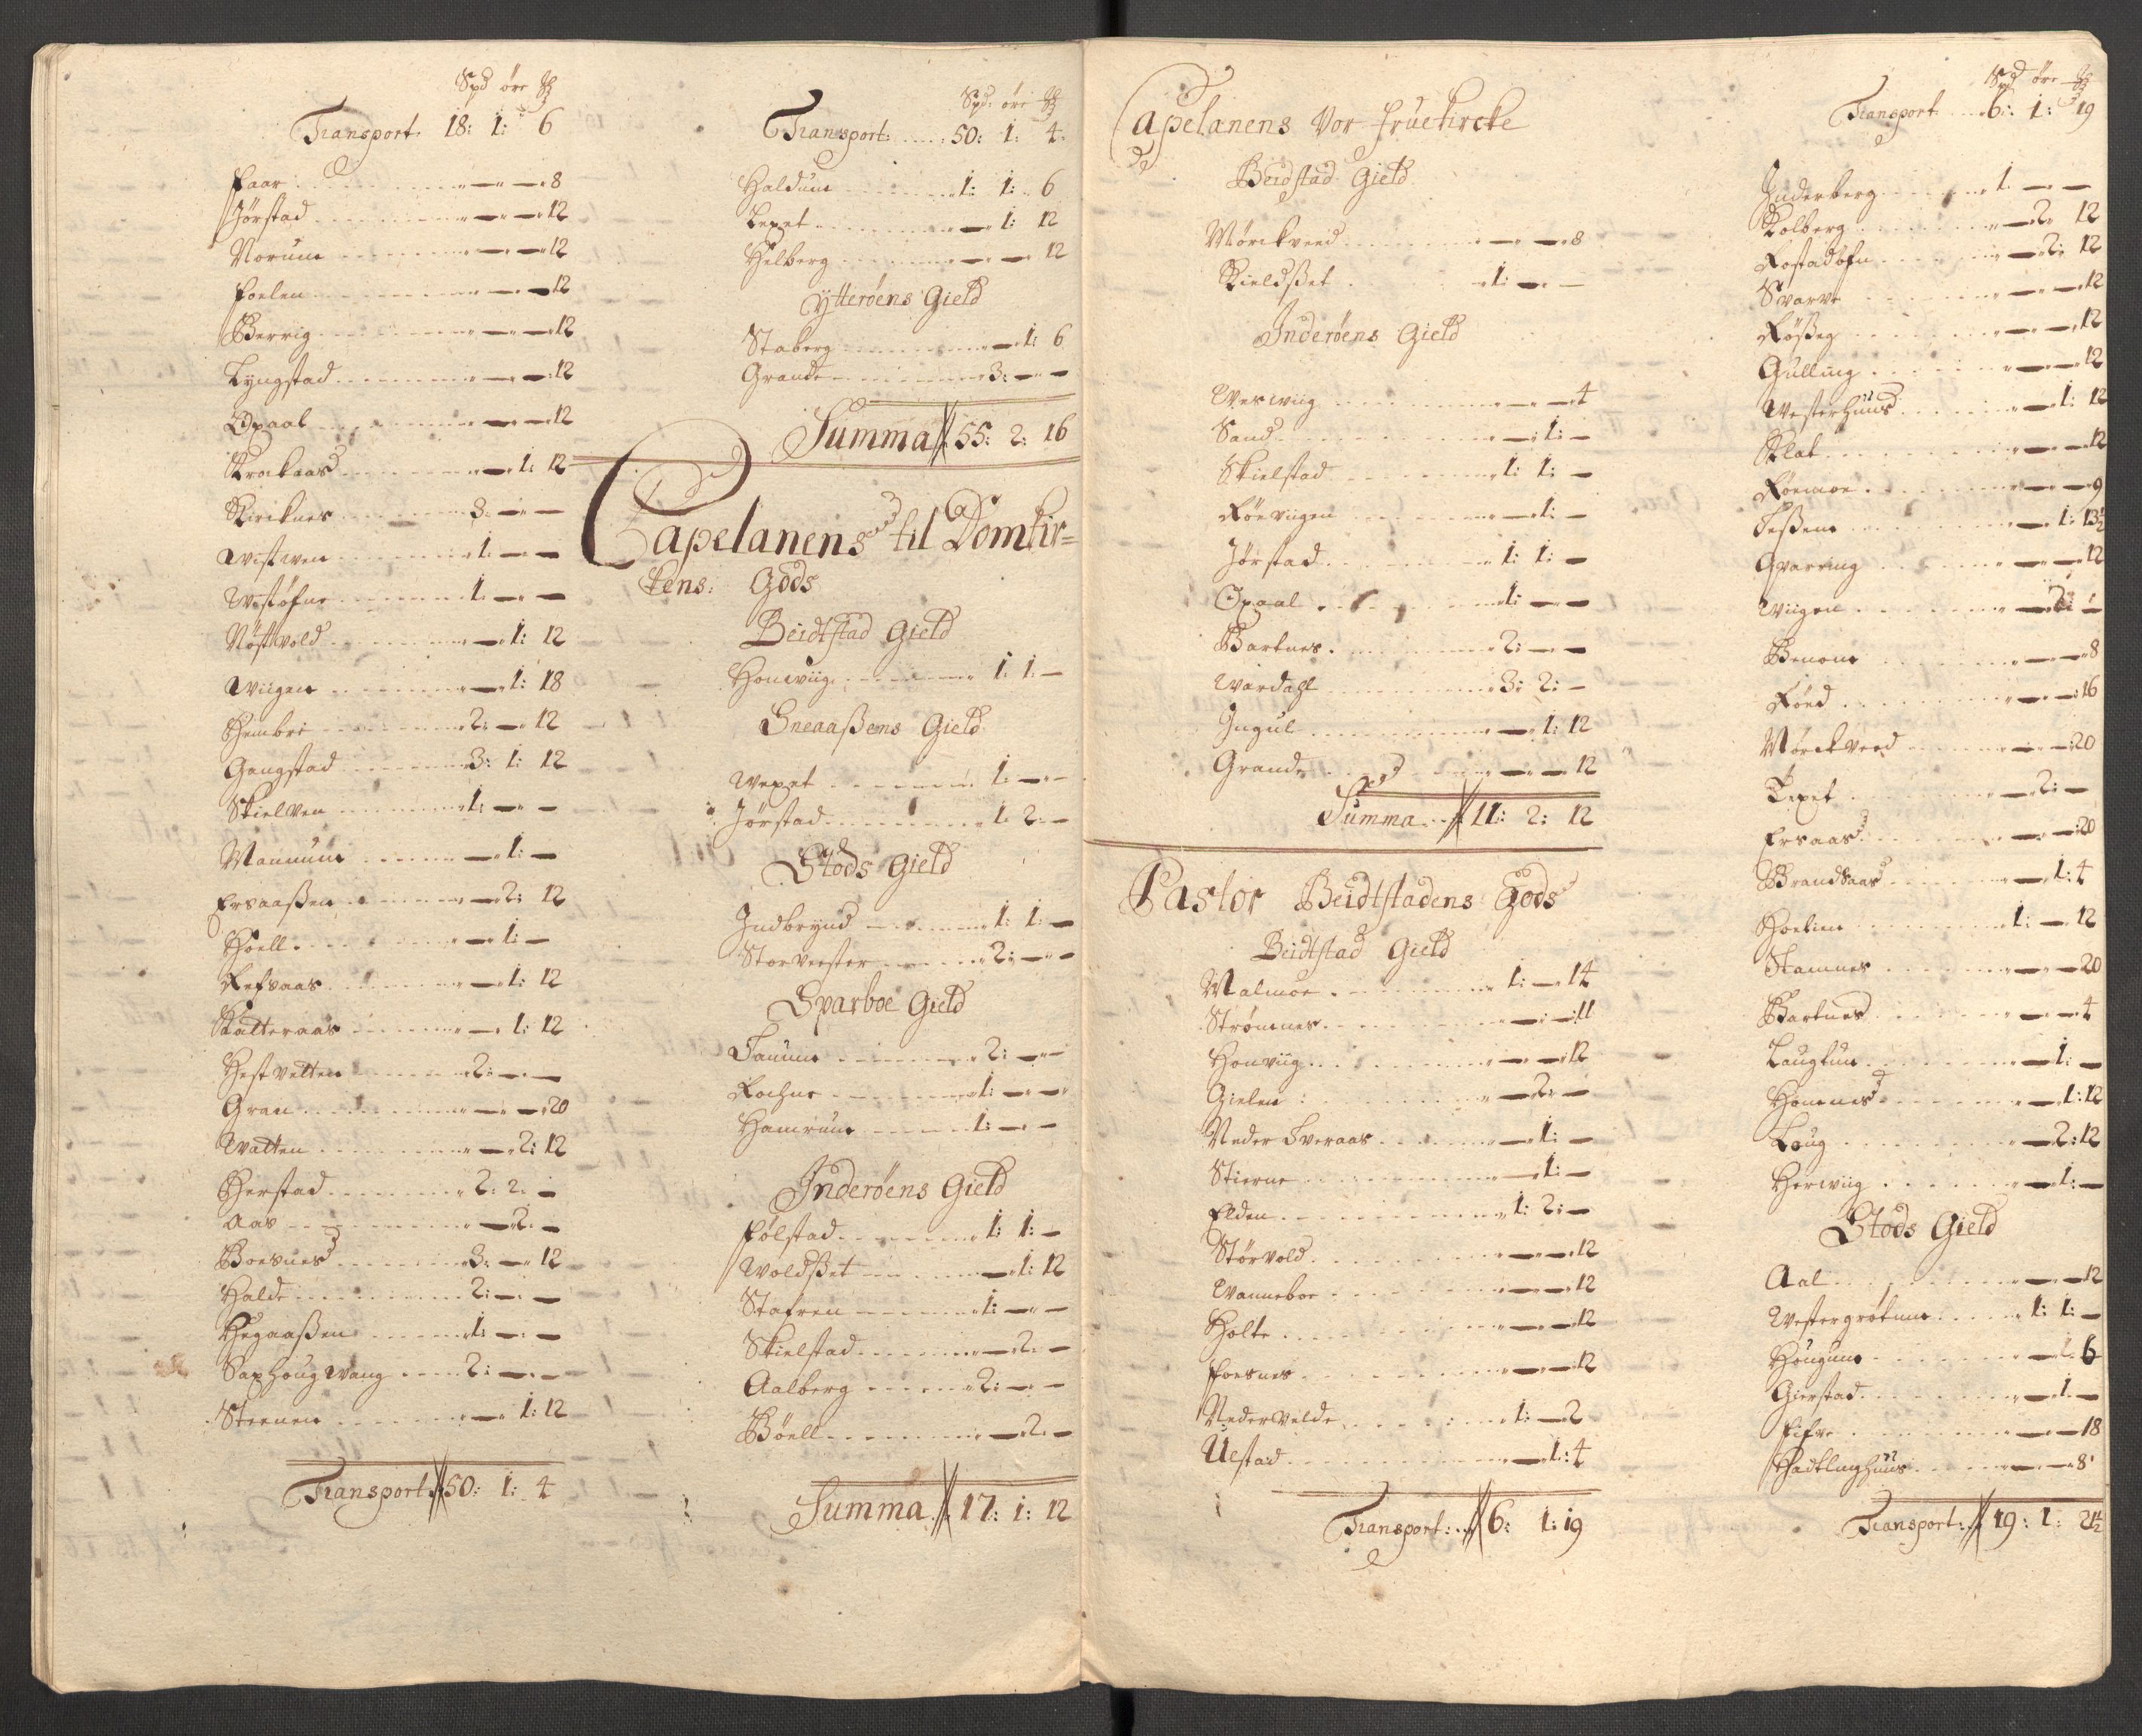 Spd öre
Transport. 18: 1: 6
Faar 8
Jörstad 12
Norum 12
Foelen 12
Berrig 12
Lyngstad 12
Opaal 12
Krokaas 1: 12
Kircknes 3: — —
Wistwen 1: — —
Wistöfne 1: — —
Nöstvold 1: 12
Wiigen 1: 18
Hembre 2: — 12
Gangstad 3: 1: 12
Skielven 1: — —
Mannum 1: —
Ersaaßen 2: 12
Hoell 1: —
Refsaas 1: 12
Katteraas 1: 12
Hestvetten 2: — —
Gran 20
Watten 2: 12
Herstad 2: 2: —
Aas 2: —
Boesnes 3: — 12
Halde 2: — —
Hegaaßen 1: — —
Saxhougwang 2: — —
Steenen 1: 12
Transport 50: 1: 4
Spd: öre
Transport: 50: 1: 4
Haldum 1: 1: 6
Lexet 1: 12
Helberg 12
Ytteröens Gield
Staberg 1: 6
Grande 3: — —
Summa 55: 2: 16
Capelanens til Domkir=
kens: Gods
Beidtstad Gield
Honwiig 1: 1: —
Sneaaßens Gield
Wexet 1: — —
Jörstad 1: 2: —
Stods Gield
Indbrynd 1: 1: —
Storveester 2: — —
Sparboe Gield
Saunne 2: — —
Roehne 1: — —
Hamrum 1: — —
Inderöens Gield
Fölstad 1: 1: —
Woldßet 1: 12
Stafren 1: — —
Skielstad 2: —
Aalberg 2: — —
Böell 2: —
Summa 17: 1: 12
Capelanens Vor Fruekircke
Beidstad Gield
Mörckveed 8
Kieldßet 1: — —
Inderöens Gield
Weswiig 4
Sand 1: —
Skielstad 1: 1: —
Röeviigen 1: —
Jörstad 1: 1: —
Opaal 1: — —
Bartnes 2: — —
Wardahl 3: 2: —
Ingul 1: 12
Grande 12
Summa 11: 2: 12
Pastor Beidtstadens Gods
Beidtstad Gield
Malmoe 1: — 14
Strömnes 11
Honviig 12
Gielen 2: —
Neder Sveraas 1: —
Stierne 1: —
Elden 1: 2: —
Störvold 12
Wanneboe 12
Holte 12
Foesnes 12
Nedervelde 1: — 2
Uestad 1: 4
Transport: 6: 1: 19
Spd öre
Transport 6: 1: 19
Inderberg 1: — —
Kolberg 2: 12
Rostadöfn 2: 12
Svarve 12
Rößeg 12
Gulling 12
Westerhuus 1: 12
Klat 12
Röemoe 9
Seßem 1: 13½
Qvarring 12
Wiigen 2: —
Benom 8
Röed 16
Mörckveed 20
Texet 2: —
Ersaas 20
Brandsaas 1: 4
Hoelien 1: — 12
Stamnes 20
Bartnes 4
Laugtun 1: —
Homnes 1: 12
Loug 2: 12
Herwiig 1: —
Stods Gield
Aal 12
Westergrötum 1: 1: —
Hougum 2: 6
Gierstad 1: —
Fifve 18
Hadtlinghuus 8
Transport: 19: 1: 21½